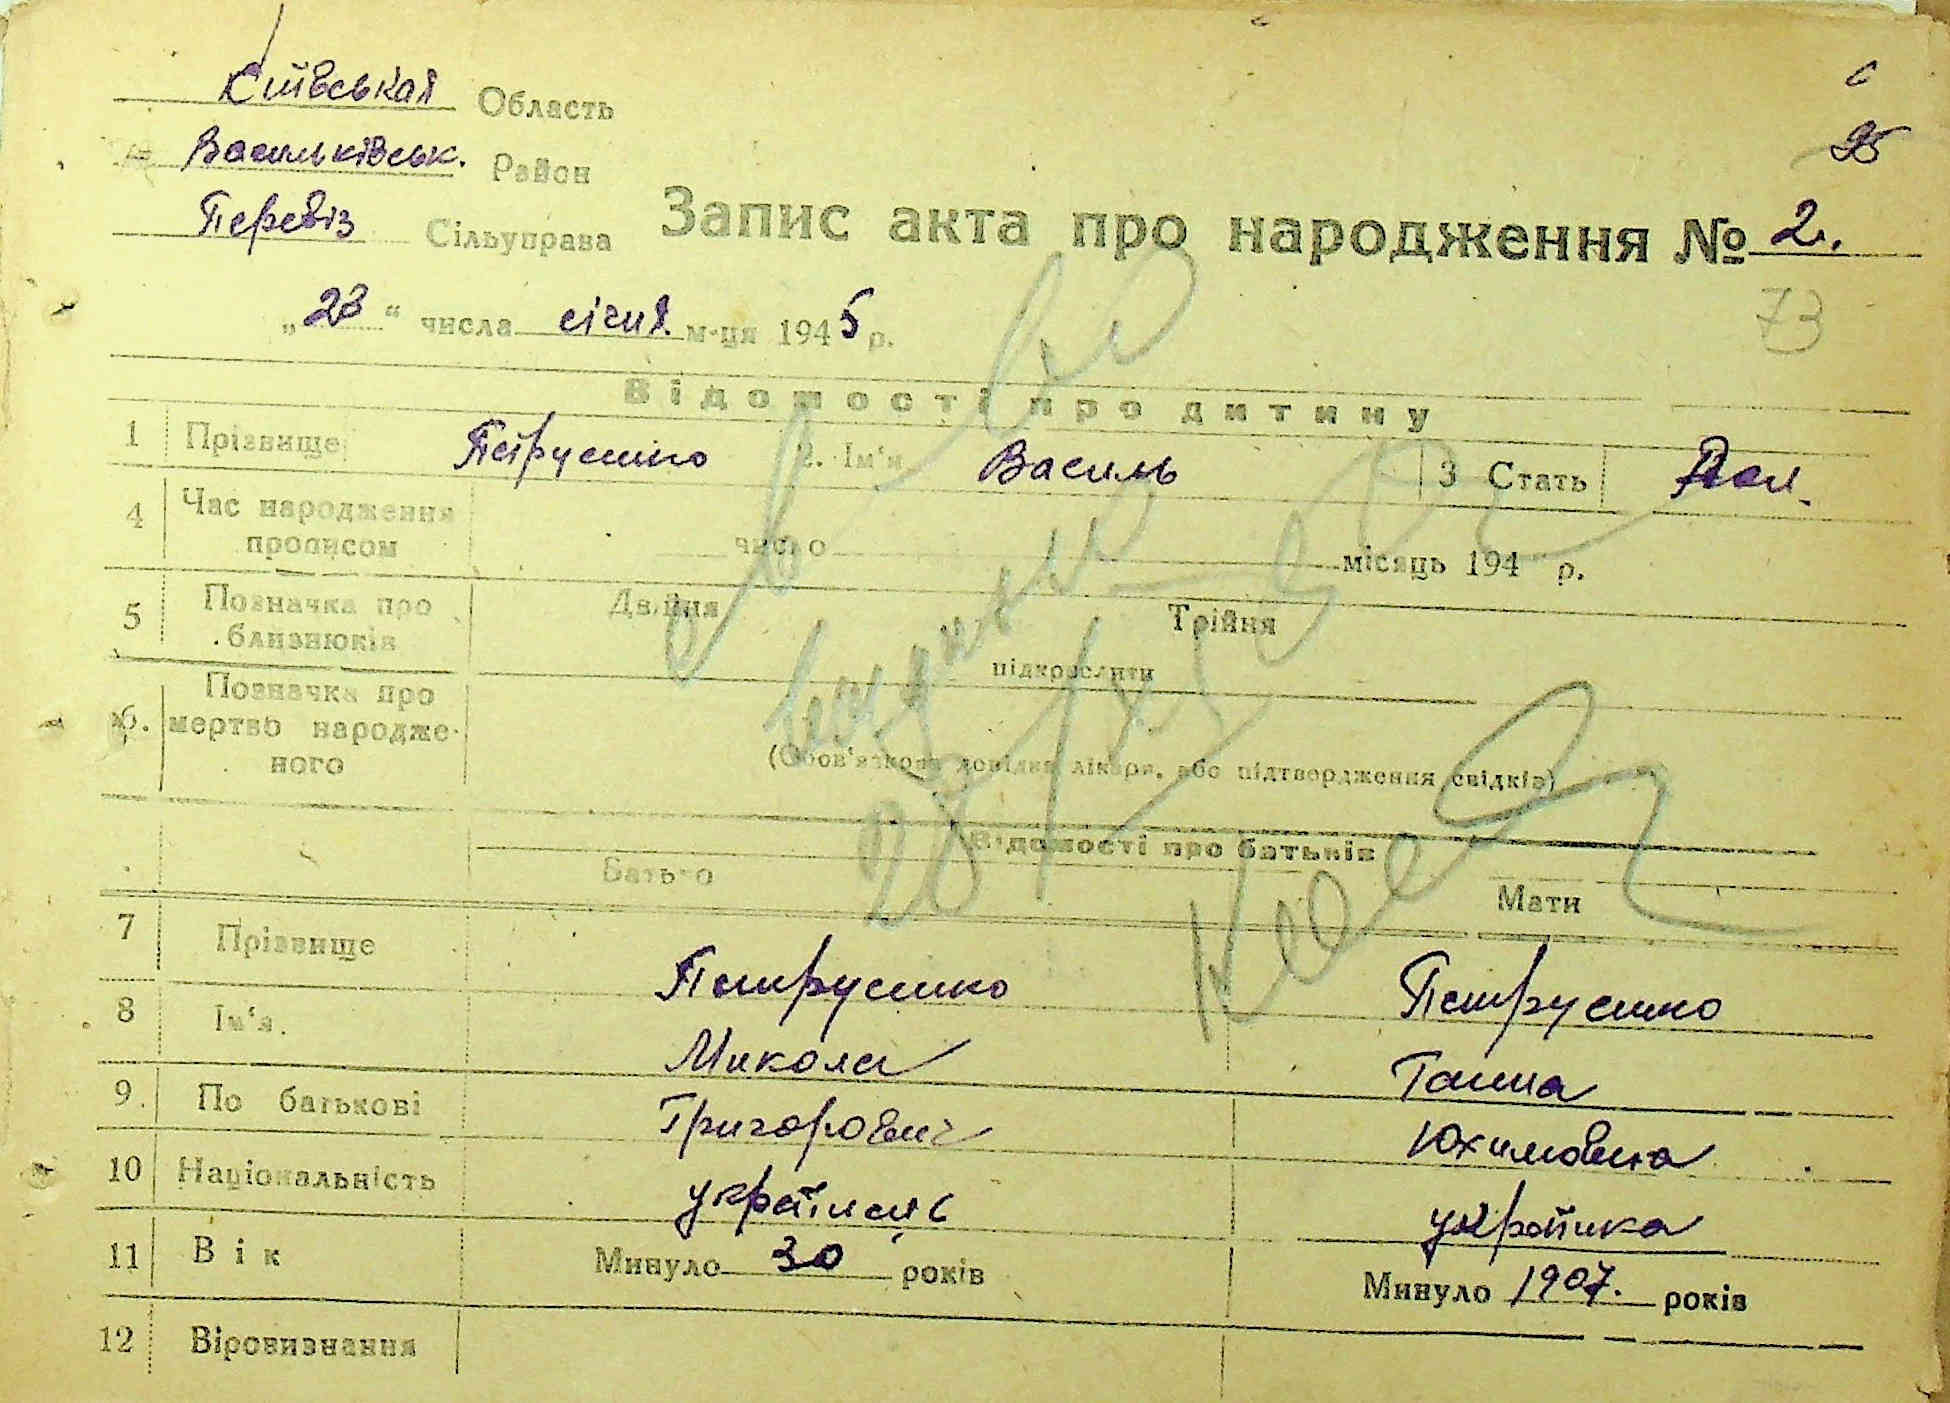 Київськая Область
Васильківськ. Район
Перевіз Сільуправа
95
Запис акта про народження № 2.
73
„23“ числа січня м-ця 1945 р.
Відомості про дитину
1 Прізвище Петрусенко 2. Ім'я Василь 3 Стать
4 Час народження прописом число місяць 194 р.
5 Позначка про близнюків Двійня Трійня
підкреслити
6. Позначка про мертво народженого
(Обов'язкова довідка лікаря, або підтвердження свідків)
Відомості про батьків
Батько Мати
7 Прізвище Петрусенко Петрусенко
8 Ім'я. Микола Ганна
9. По батькові Григорович Юхимовна
10 Національність українець українка
11 Вік Минуло 30 років Минуло 1907. років
12 Віровизнання